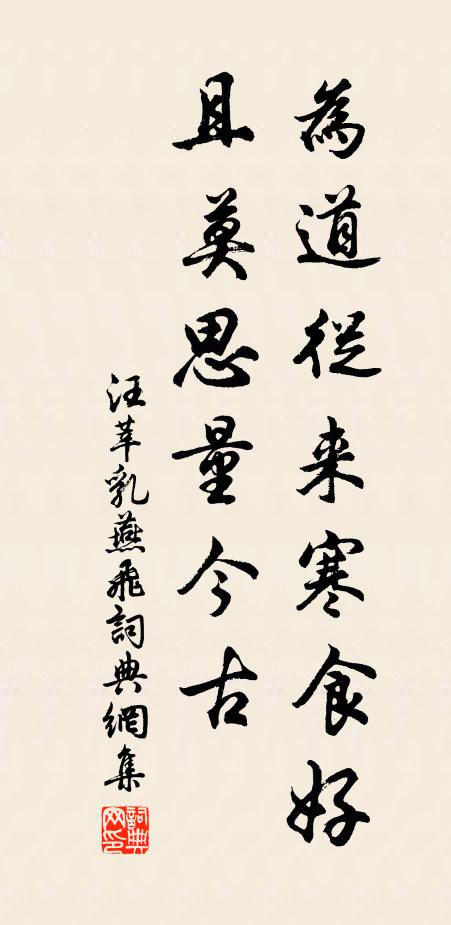 為道從来寒食好
且莫思量今古
汪莘乳燕飛詞典網集
詞典网印